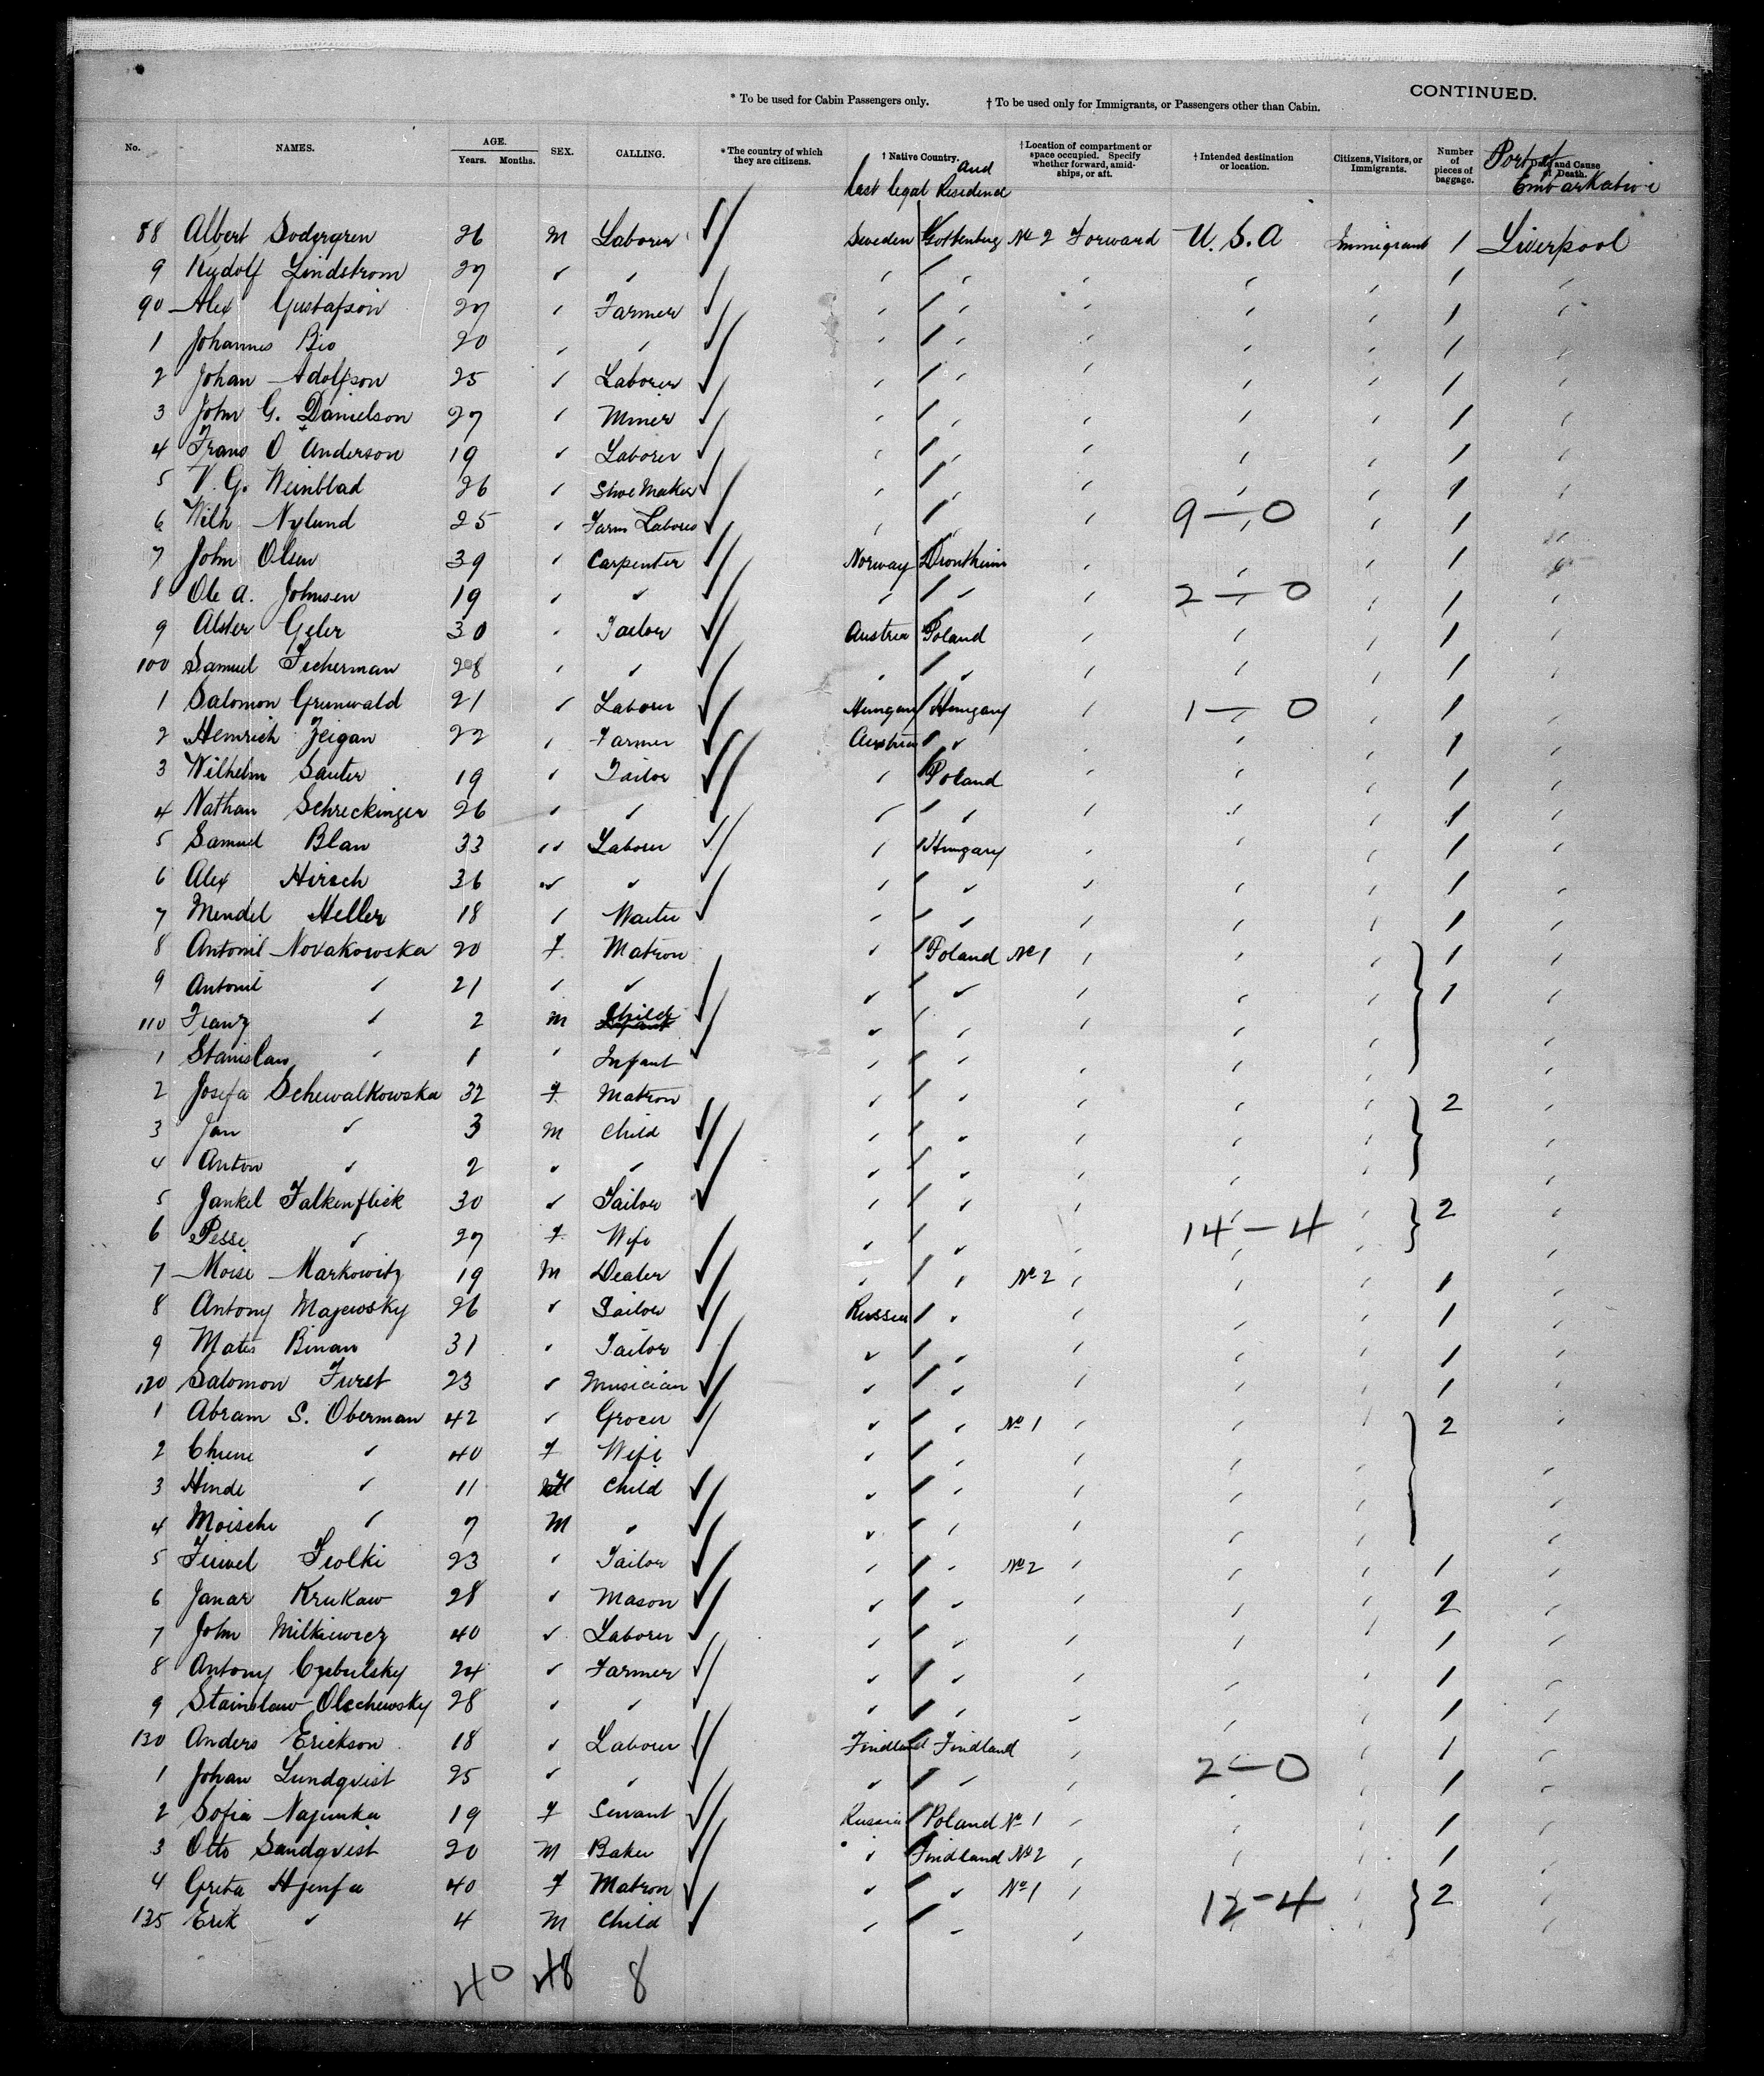 CONTINUED.
* To be used for Cabin Passengers only. † To be used only for Immigrants, or Passengers other than Cabin.
No. NAMES. AGE. Years. Months. SEX. CALLING. * The country of which they are citizens. † Native Country. and last legal Residence † Location of compartment or space occupied. Specify whether forward, amidships, or aft. † Intended destination or location. Citizens, Visitors, or Immigrants. Number of pieces of baggage. Port of Embarkation and Cause of Death.
88 Albert Sodergren 26 M Laborer Sweden Gottenberg No 2 Forward U.S.A Immigrant 1 Liverpool
9 Rudolf Lindstrom 27 " " " " " " " 1 "
90 Alex Gustafson 27 " Farmer " " " " " 1 "
1 Johannes Bio 20 " " " " " " " 1 "
2 Johan Adolfson 25 " Laborer " " " " " 1 "
3 John G. Danielson 27 " Miner " " " " " 1 "
4 Frans O Anderson 19 " Laborer " " " " " 1 "
5 V. G. Weinblad 26 " Shoe Maker " " " " " 1 "
6 Wilh Nylund 25 " Farm Laborer " " " 9—0 " 1 "
7 John Olsen 39 " Carpenter Norway Drontheim " " " 1 "
8 Ole A. Johnsen 19 " " " " " 2—0 " 1 "
9 Alster Geler 30 " Tailor Austria Poland " " " 1 "
100 Samuel Fscherman 28 " " " " " " " 1 "
1 Salomon Grunwald 21 " Laborer Hungary Hungary " 1—0 " 1 "
2 Heinrich Zeigan 22 " Farmer Austria " " " " 1 "
3 Wilhelm Sauter 19 " Tailor " Poland " " " 1 "
4 Nathan Schreckinger 26 " " " " " " " 1 "
5 Samuel Blau 33 " Laborer " Hungary " " " 1 "
6 Alex Hirsch 36 " " " " " " " 1 "
7 Mendel Heller 18 " Waiter " " " " " 1 "
8 Antonil Novakowska 20 F Matron " Poland No 1 " " " 1 "
9 Antonil " 21 " " " " " " " 1 "
110 Franz " 2 M Child " " " " "
1 Stanislaus " 1 " Infant " " " " " "
2 Josefa Schewalkowska 32 F Matron " " " " " 2 "
3 Jan " 3 M Child " " " " " "
4 Anton " 2 " " " " " " " "
5 Jankel Falkenflick 30 " Tailor " " " " " 2 "
6 Pesse " 27 F Wife " " " 14—4 " "
7 Moise Markowitz 19 M Dealer " " No 2 " " " 1 "
8 Antony Majewsky 26 " Sailor Russia " " " " 1 "
9 Mates Binan 31 " Tailor " " " " " 1 "
120 Salomon Furst 23 " Musician " " " " " 1 "
1 Abram S. Oberman 42 " Grocer " " No 1 " " " 2 "
2 Chune " 40 F Wife " " " " "
3 Hinde " 11 F Child " " " " " "
4 Moische " 7 M " " " " " " "
5 Feiwel Frolki 23 " Tailor " " No 2 " " 1 "
6 Janar Krukaw 28 " Mason " " " " " 2 "
7 John Milkiewicz 40 " Laborer " " " " " 1 "
8 Antony Czebulsky 24 " Farmer " " " " " 1 "
9 Stainslaw Olechewsky 28 " " " " " " " 1 "
130 Anders Erickson 18 " Laborer Findland Findland " " " 1 "
1 Johan Lundqvist 25 " " " " " 2—0 " 1 "
2 Sofia Najunka 19 F Servant Russia Poland No 1 " " " 1 "
3 Otto Sandqvist 20 M Baker " Findland No 2 " " " 1 "
4 Greta Hjenfa 40 F Matron " " No 1 " " " 2 "
135 Erik " 4 M Child " " " 12—4 " "
40 48 8